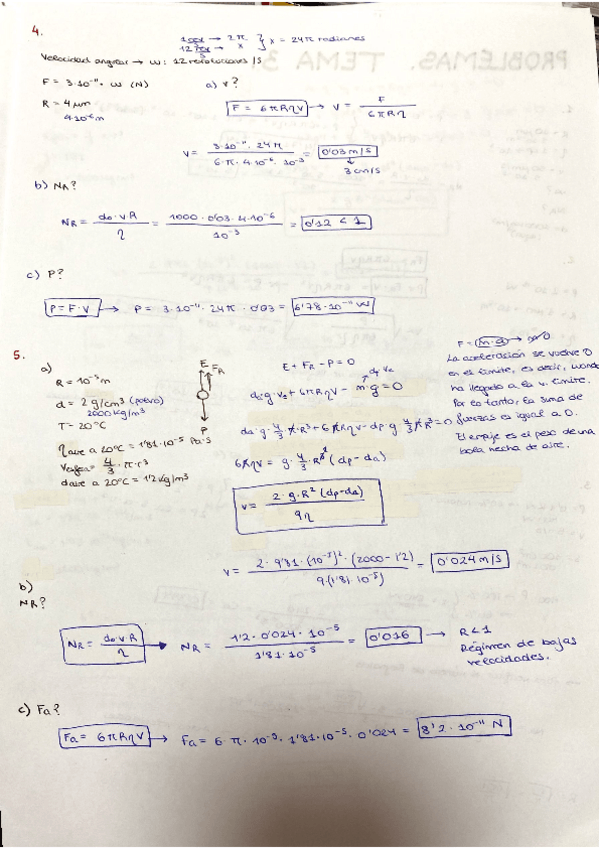 4.
1 rev → 2π
12 rev/s → x } x = 24π radianes
Velocidad angular → ω: 12 revoluciones / s
F = 3·10⁻¹¹ · ω (N)
a) v?
R = 4 μm
4·10⁻⁶ m
F = 6πRηv → v = F / 6πRη
v = 3·10⁻¹¹ · 24π / 6·π·4·10⁻⁶·10⁻³ = 0'03 m/s
↓
3 cm/s
b) NR?
NR = da·v·R / η = 1000·0'03·4·10⁻⁶ / 10⁻³ = 0'12 < 1
c) P?
P = F·v → P = 3·10⁻¹¹·24π·0'03 = 6'78·10⁻¹¹ W
5.
a)
R = 10⁻⁵ m
d = 2 g/cm³ (polvo)
2000 kg/m³
T = 20°C
η aire a 20°C = 1'81·10⁻⁵ Pa·s
Vesfera = 4/3 · π·r³
d aire a 20°C = 1'2 kg/m³
E FR
P
E + FR - P = 0
dp Va
da·g·Va + 6πRηv - m·g = 0
da·g·4/3·π·R³ + 6πRηv - dp·g·4/3πR³ = 0
6πRηv = g·4/3·R³ (dp - da)
v = 2·g·R² (dp - da) / 9η
v = 2·9'81·(10⁻⁵)²·(2000 - 1'2) / 9·(1'81·10⁻⁵) = 0'024 m/s
F = m·a → 0
La aceleración se vuelve 0
en el límite, es decir,
ha llegado a la v. límite.
Por lo tanto, la suma de
fuerzas es igual a 0.
El empuje es el peso de una
bola hecha de aire.
b)
NR?
NR = da·v·R / η → NR = 1'2·0'024·10⁻⁵ / 1'81·10⁻⁵ = 0'016 → R<1
Régimen de bajas
velocidades.
c) Fa?
Fa = 6πRηv → Fa = 6·π·10⁻⁵·1'81·10⁻⁵·0'024 = 8'2·10⁻¹¹ N